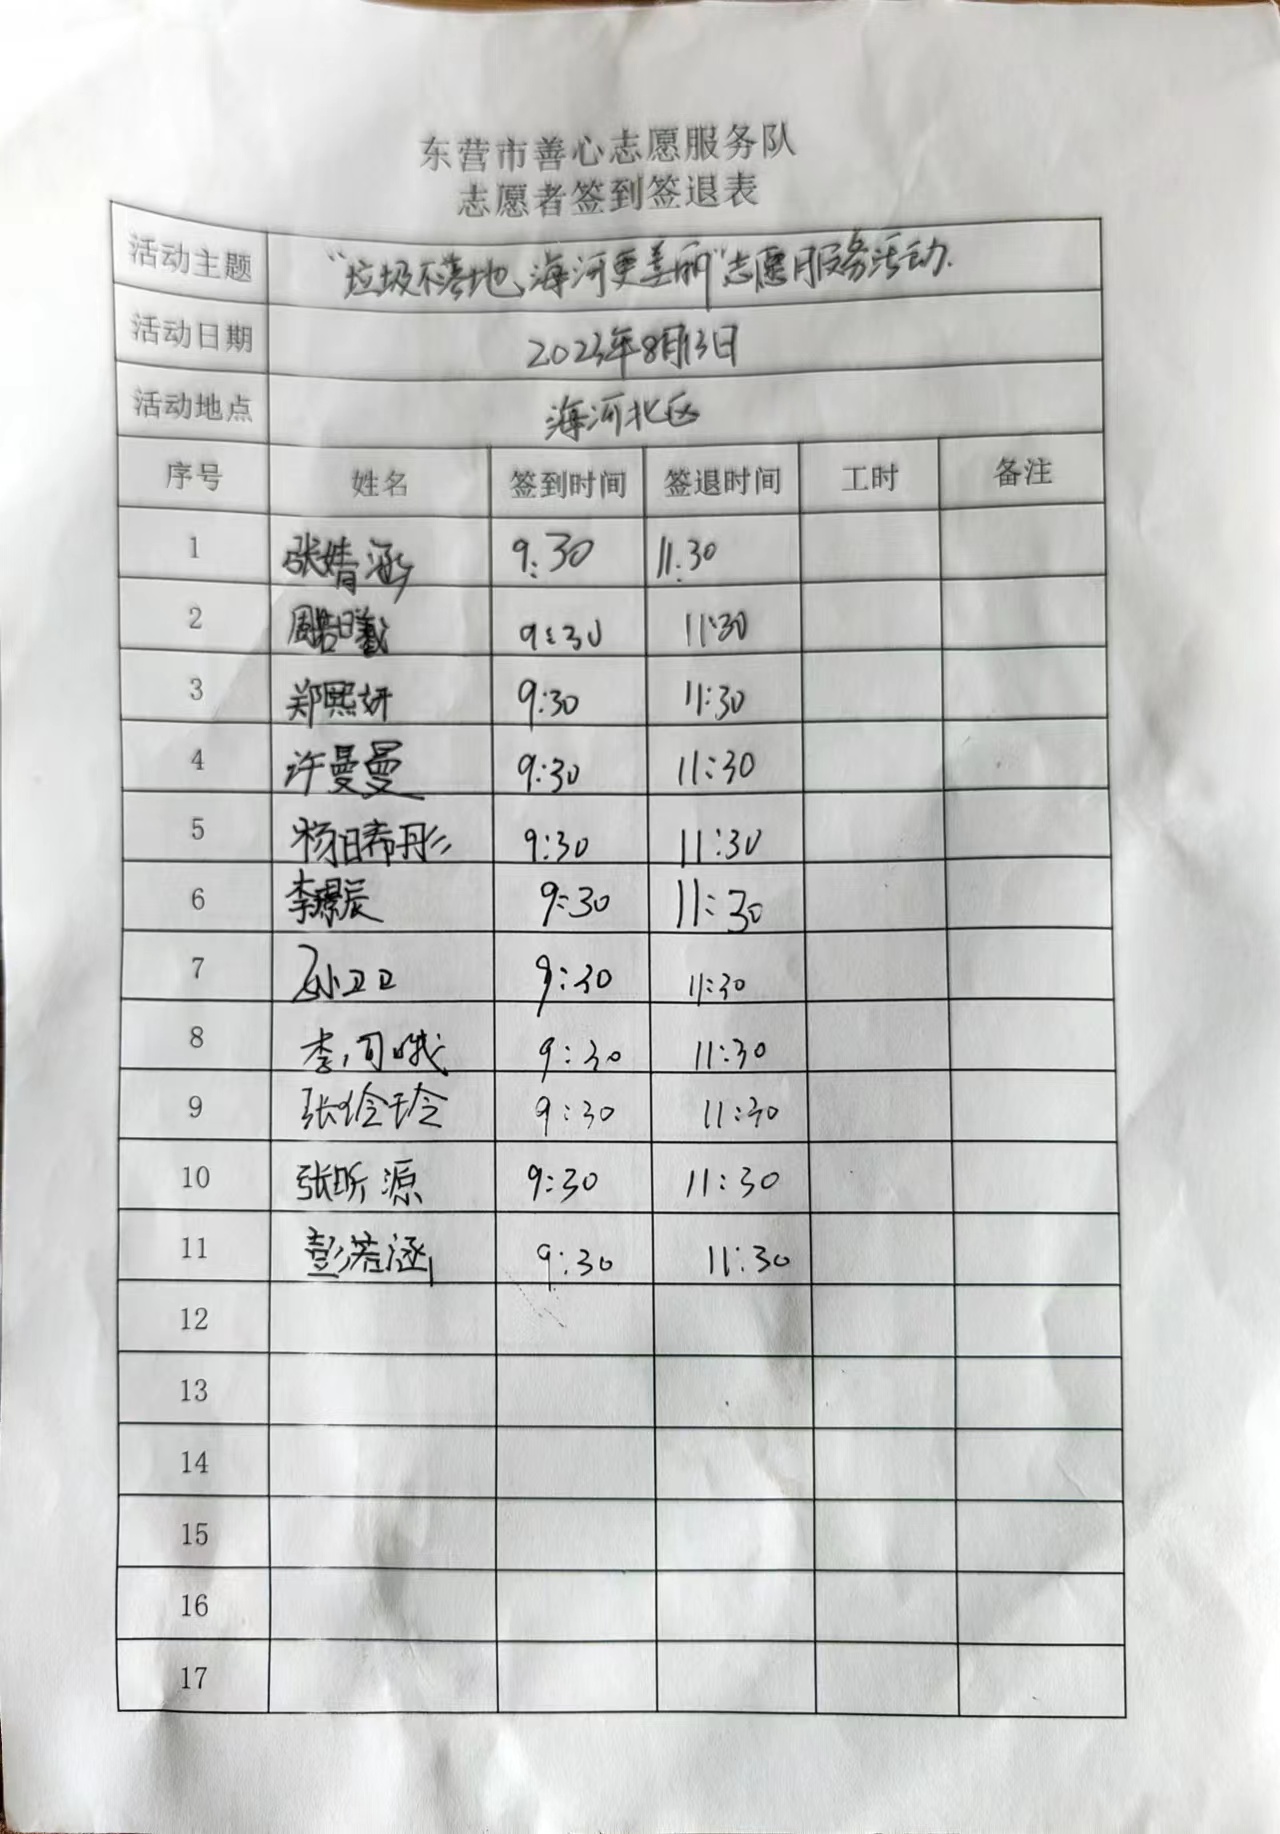 东营市善心志愿服务队
志愿者签到签退表
活动主题 “垃圾不落地、海河更美丽”志愿服务活动.
活动日期 2023年8月13日
活动地点 海河北区
序号 姓名 签到时间 签退时间 工时 备注
1 张婧涵 9:30 11:30
2 9:30 11:30
3 郑熙妍 9:30 11:30
4 许曼曼 9:30 11:30
5 9:30 11:30
6 李璟辰 9:30 11:30
7 孙卫卫 9:30 11:30
8 9:30 11:30
9 9:30 11:30
10 张昕源 9:30 11:30
11 彭若涵 9:30 11:30
12
13
14
15
16
17